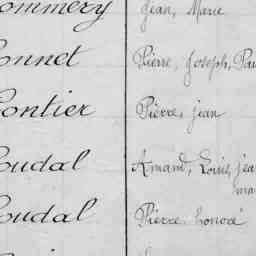 ommery Jean, Marie
onnet Pierre, Joseph, Pau
ontier Pierre, Jean
oudal Amand, Louis, Jea
ma
oudal Pierre Honoré